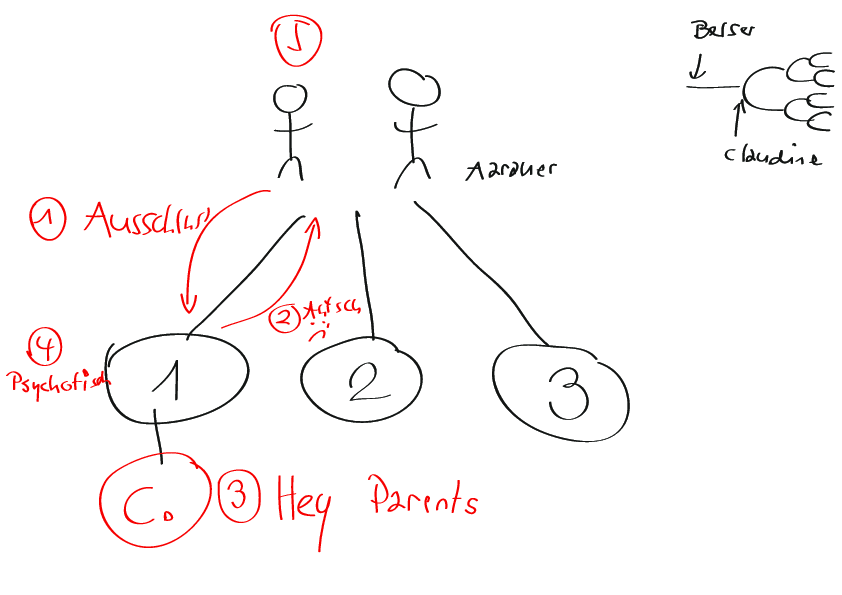 Besser
5
Claudine
Aarauer
1 Ausschluss
2 Autsch
4
Psychotisch
1
2
3
C.
3 Hey Parents